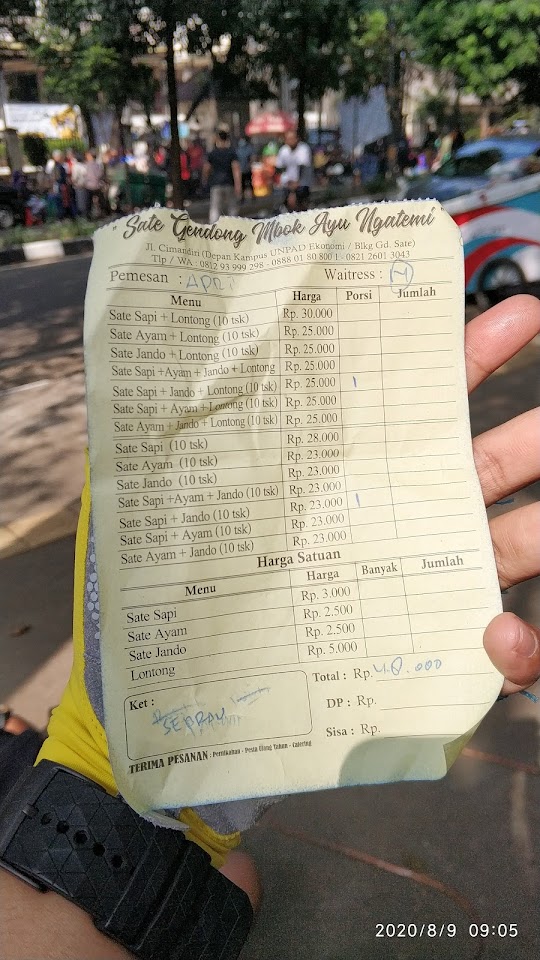 "Sate Gendong Mbok Ayu Ngatemi"
Jl. Cimandiri (Depan Kampus UNPAD Ekonomi / Blkg Gd. Sate)
Tlp / WA : 0812 93 999 298 - 0888 01 80 800 1 - 0821 2601 3043
Pemesan : Waitress : H
Menu Harga Porsi Jumlah
Sate Sapi + Lontong (10 tsk) Rp. 30.000
Sate Ayam + Lontong (10 tsk) Rp. 25.000
Sate Jando + Lontong (10 tsk) Rp. 25.000
Sate Sapi +Ayam + Jando + Lontong Rp. 25.000
Sate Sapi + Jando + Lontong (10 tsk) Rp. 25.000 1
Sate Sapi + Ayam + Lontong (10 tsk) Rp. 25.000
Sate Ayam + Jando + Lontong (10 tsk) Rp. 25.000
Sate Sapi (10 tsk) Rp. 28.000
Sate Ayam (10 tsk) Rp. 23.000
Sate Jando (10 tsk) Rp. 23.000
Sate Sapi +Ayam + Jando (10 tsk) Rp. 23.000
Sate Sapi + Jando (10 tsk) Rp. 23.000 1
Sate Sapi + Ayam (10 tsk) Rp. 23.000
Sate Ayam + Jando (10 tsk) Rp. 23.000
Harga Satuan
Menu Harga Banyak Jumlah
Sate Sapi Rp. 3.000
Sate Ayam Rp. 2.500
Sate Jando Rp. 2.500
Lontong Rp. 5.000
Ket :
Total : Rp. 48.000
DP : Rp.
Sisa : Rp.
TERIMA PESANAN : Pernikahan - Pesta Ulang Tahun - Catering
2020/8/9 09:05